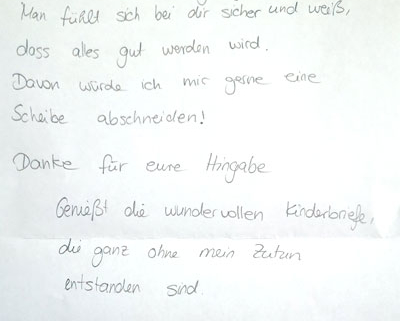 Man fühlt sich bei dir sicher und weiß,
dass alles gut werden wird.
Davon würde ich mir gerne eine
Scheibe abschneiden!
Danke für eure Hingabe
Genießt die wundervollen Kinderbriefe,
die ganz ohne mein Zutun
entstanden sind